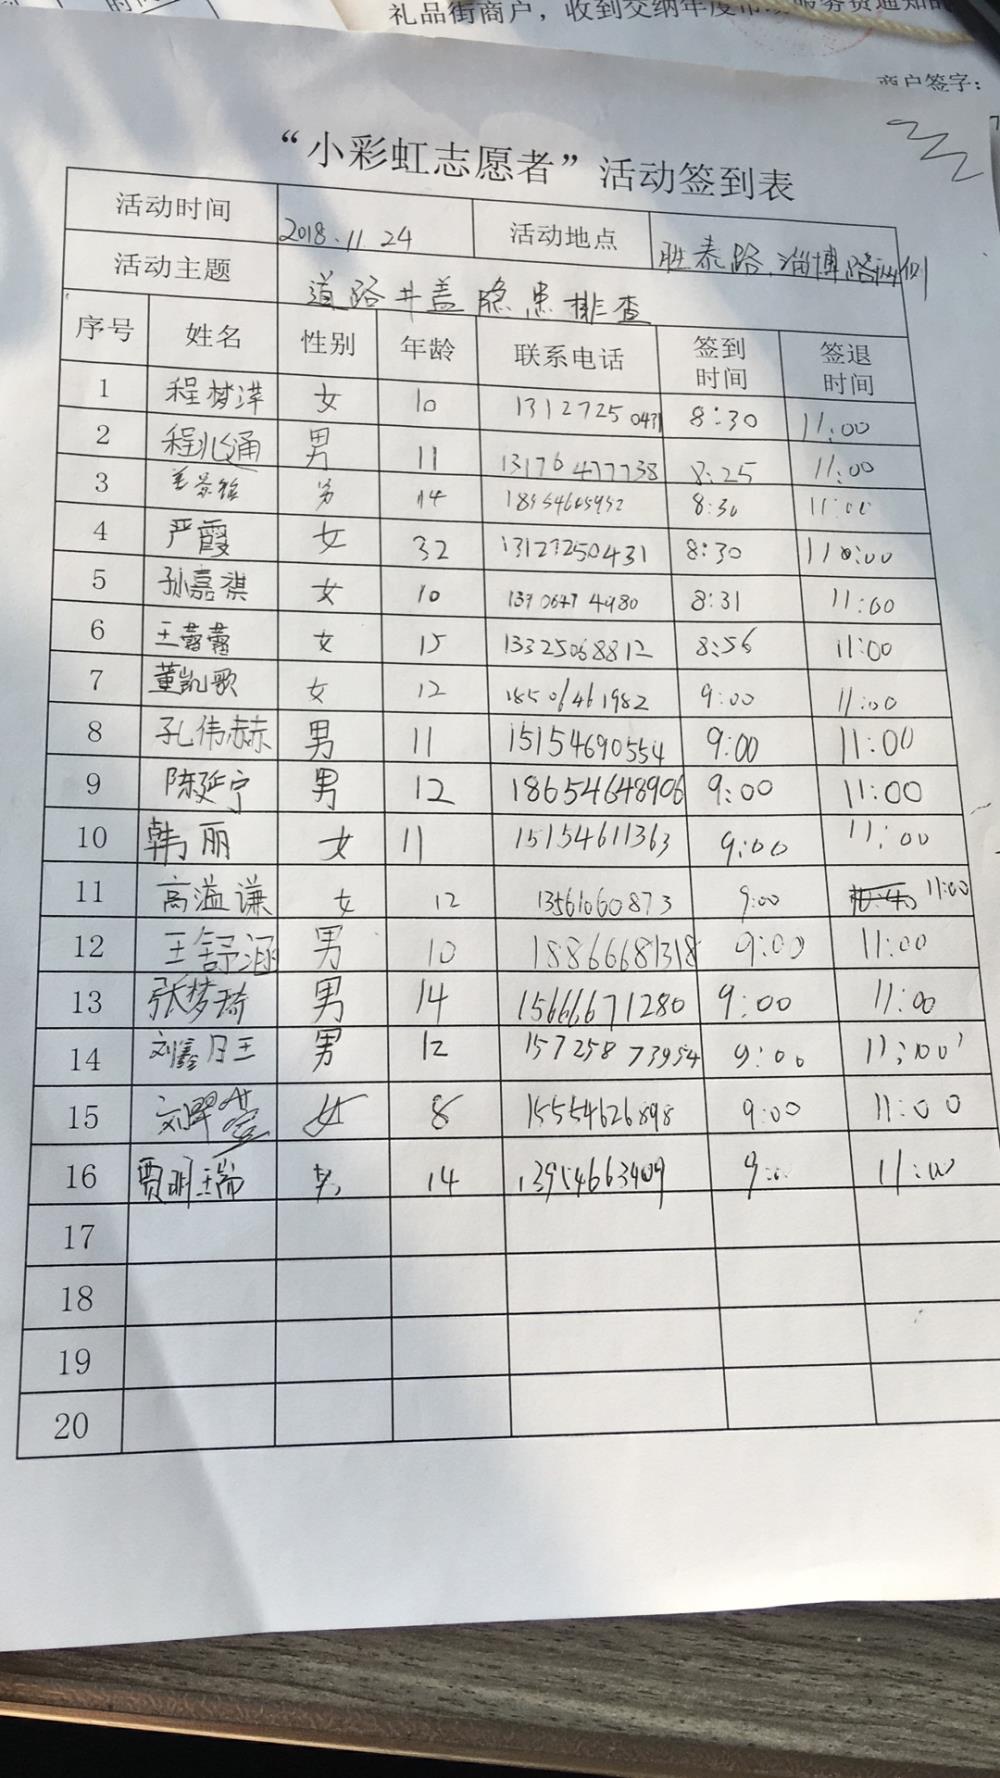 礼品街商户，收到交纳年度
商户签字：
“小彩虹志愿者”活动签到表
活动时间 2018.11.24 活动地点 胜泰路、淄博路两侧
活动主题 道路井盖隐患排查
序号 姓名 性别 年龄 联系电话 签到时间 签退时间
1 程梦洋 女 10 13127250431 8:30 11:00
2 程兆通 男 11 13176477738 8:25 11:00
3 男 14 18954605952 8:30 11:00
4 严霞 女 32 13127250431 8:30 11:00
5 孙嘉淇 女 10 13906474980 8:31 11:00
6 王蕾蕾 女 15 13325068812 8:56 11:00
7 董凯歌 女 12 18501461982 9:00 11:00
8 孔伟赫 男 11 15154690554 9:00 11:00
9 陈延宁 男 12 18654648906 9:00 11:00
10 韩丽 女 11 15154611363 9:00 11:00
11 高溢谦 女 12 13561060873 9:00 11:00
12 王舒涵 男 10 18866681318 9:00 11:00
13 张梦琦 男 14 15666671280 9:00 11:00
14 刘鑫玥 男 12 15725873954 9:00 11:00
15 女 8 15554626898 9:00 11:00
16 贾明瑞 男 14 13954663409 9:00 11:00
17
18
19
20